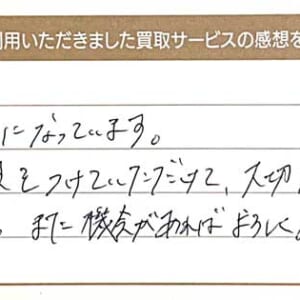 利用いただきました買取サービスの感想を
になっています。
をつけていただけて、大切
また機会があればよろしく